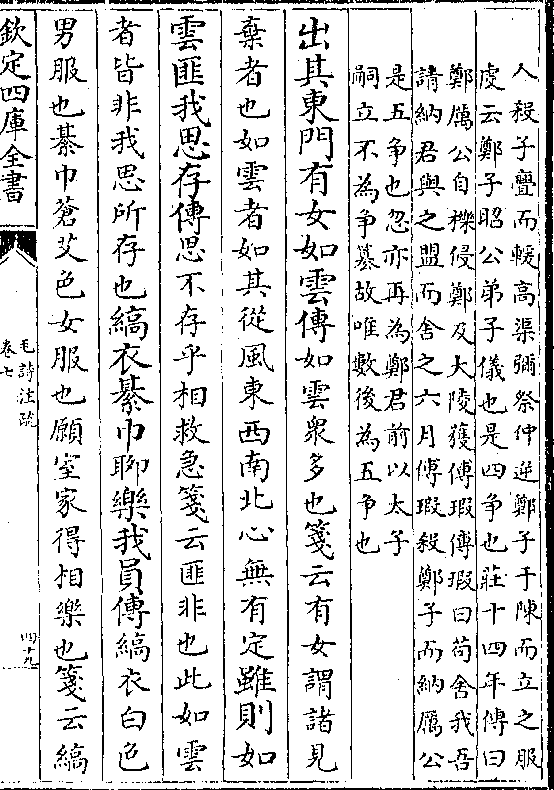 人殺子亹而轘高渠彌祭仲逆鄭子于陳而立之服
虔云鄭子昭公弟子儀也是四争也莊十四年傳曰
鄭厲公自櫟侵鄭及大陵獲傅瑕傅瑕曰苟舍我吾
請納君與之盟而舍之六月傅瑕殺鄭子而納厲公
是五争也忽亦再為鄭君前以太子
嗣立不為争篡故唯數後為五争也
出其東門有女如雲傳如雲衆多也箋云有女謂諸見
棄者也如雲者如其從風東西南北心無有定雖則如
雲匪我思存傳思不存乎相救急箋云匪非也此如雲
者皆非我思所存也縞衣綦巾聊樂我員傳縞衣白色
男服也綦巾蒼艾色女服也願室家得相樂也箋云縞
欽定四庫全書
毛詩注疏
卷七
四十九